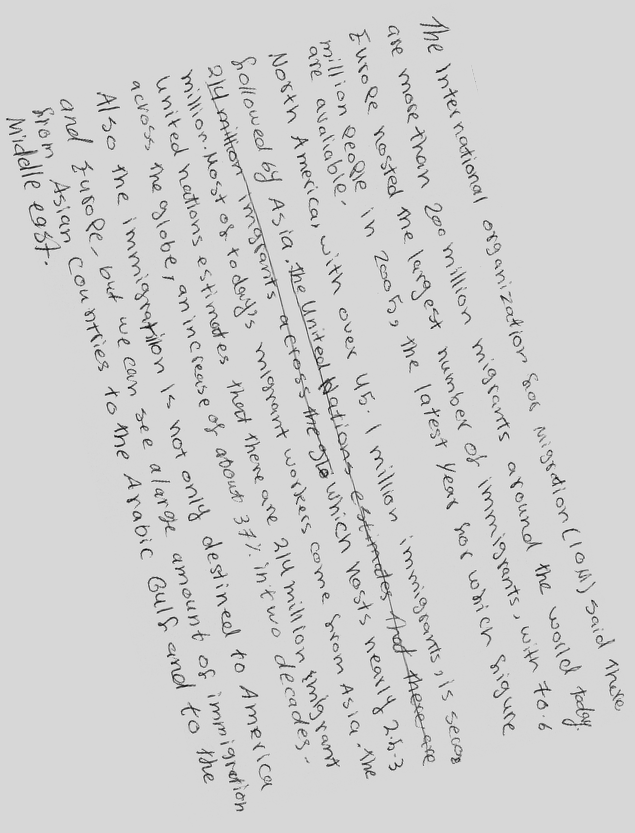 The International organization for Migration (IOM) said there
are more than 200 million migrants around the world today.
Europe hosted the largest number of immigrants, with 70.6
million people in 2005, the latest year for which figure
are avaliable.
North America, with over 45.1 million immigrants, is
followed by Asia, The United Nations estimates that there are
214 million imigrants across the glo which hosts nearly 25.3
million. Most of today's migrant workers come from Asia. the
United nations estimates that there are 214 million imigrant
across the globe, an increase of about 37% in two decades.
Also the immigration is not only destined to America
and Europe, but we can see a large amount of immigration
from Asian countries to the Arabic Gulf and to the
Middle east.